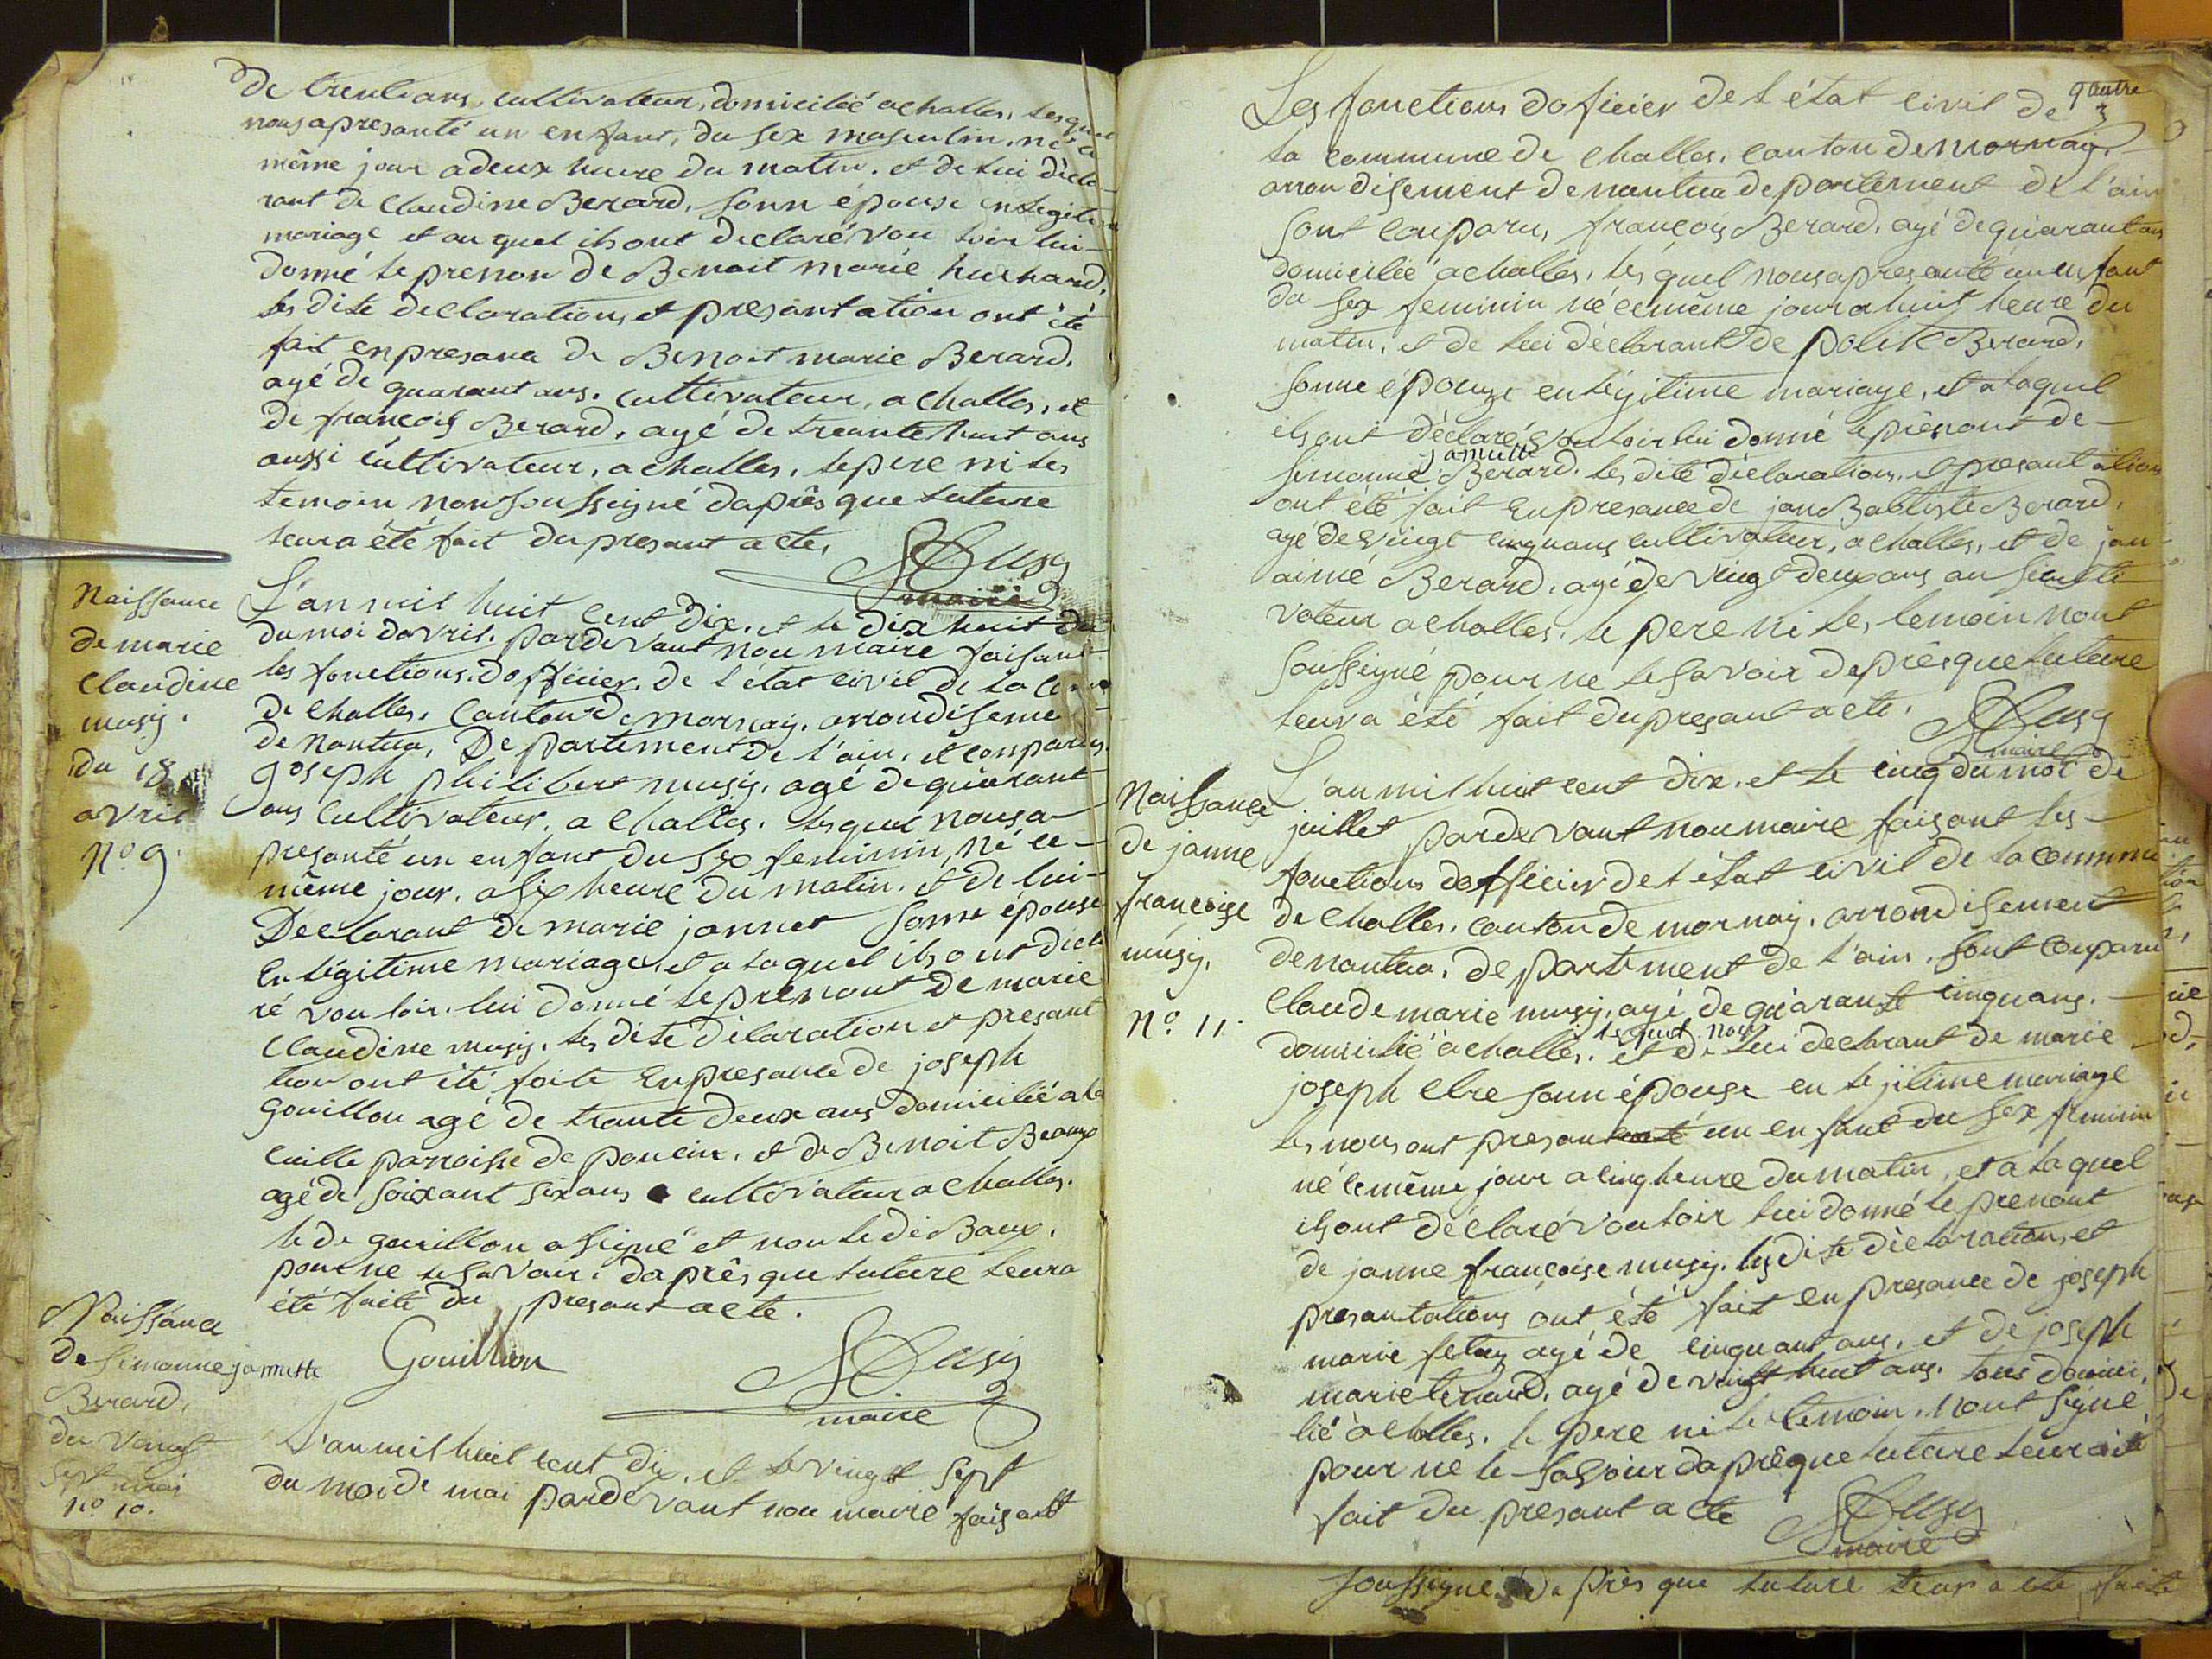 De trente ans, cultivateur, domicilié a challes, lesquel
nous a presanté un enfant, du sex masculin, né ce
même jour a deux heure du matin. et de lui décla-
rant de Claudine Berard, sonn épouse en legitime
mariage et au quel ils ont declaré vou loir lui-
donné le prenon de Benoit marie huchard.
les dite declarations et presantation ont été
fait en presance de Benoit marie Berard,
agé de quarant ans. cultivateur, a challes, et
de françois Berard, agé de treante huit ans
aussi cultivateur, a challes, le pere ni les
temoin non soussigné daprês que luture
leur a été fait du presant acte,
maire
Naissance
de marie
Claudine
musy.
du 18
avril
N.o 9.
L'an mil huit cent dix, et le dix huit du
du moi davril. pardevant nou maire faisant
les fonctions dofficier de l'état civil de la
de Challes, Canton de mornay, arrondiseme
de Nantua, Departement de l'ain, et conparus
Joseph philibert musy, agé de quarant
ans Cultivateur, a Challes. lesquel nous a
presanté un enfant du sex feminin, né ce-
même jour, a six heure du matin, et de lui-
Déclarant de marie jannet sonne épouse
en légitime mariage, et a laquel ils ont décla
ré vou loir lui donné le prenont de marie
Claudine musy. les dite déclaration et presant
tion ont été faite en presance de joseph
Gouillon agé de trante deux ans domicilié a la
cuille parroisse de poncin, et de Benoit Beaux
agé de soixant six ans cultivateur a challes.
le de gouillon a signé et non le de Baux,
pour ne le savoir. daprês que luture leur a
été faite du presant acte.
Gouillon
maire
Naissance
de Simonne jamette
Berard,
du vengt
sept mai
N.o 10.
L'an mil huit cent dix, et le vingt sept
du moi de mai pardevant nou maire faisant
quatre
3
Les fonctions doficier de l'état civil de
la commune de Challes, canton de mornay,
arrondisement de nantua departement de l'ain
sont conparus, françois Berard, agé de quarant ans
domicilié a challes, les quel nous a presanté un enfant
du sex feminin né ce même jour a huit heure du
matin, et de lui déclarant de Berard,
sonne épouze en légitime mariage, et a laquel
ils ont déclaré vouloir lui donné le prênont de-
jamette
Simonne Berard. les dite déclaration, et presantation
ont été fait en presance de jan Babtiste Berard,
agé de vingt cinq ans cultivateur, a challes, et de jan-
aimé Berard, agé de vingt deux ans au si culti-
vateur a challes, le pere ni les temoin nont
soussigné pour ne le savoir daprês que luture
leur a été fait du presant acte.
maire
Naissance
de janne
françoise
musy,
N.o 11.
L'an mil huit cent dix, et le cinq du moi de
juillet pardevant nou maire faisant les-
fonctions dofficier de l état civil de la commune
de Challes, canton de mornay, arrondisement
de nantua, departement de l'ain, sont conparu
Claude marie musy, agé de quarante cinq ans.-
lesquel nou
domicilié a challes, et de lui declarant de marie
joseph sonn épouse en le jitime mariage
les nous ont presanté un enfant du sex feminin
né le même jour a cinq heure du matin, et a la quel
ils ont déclaré vouloir lui donné le prenont
de janne françoise musy, les dite déclaration, et
presantations ont été fait en presance de joseph
marie agé de cinquant ans, et de joseph
marie agé de vingt huit ans. tous domici,
lié a challes, le pere ni le temoin, nont signé
pour ne le savoir daprêque luture leur a été
fait du presant acte
maire
soussigné daprès que luture leur a été faite